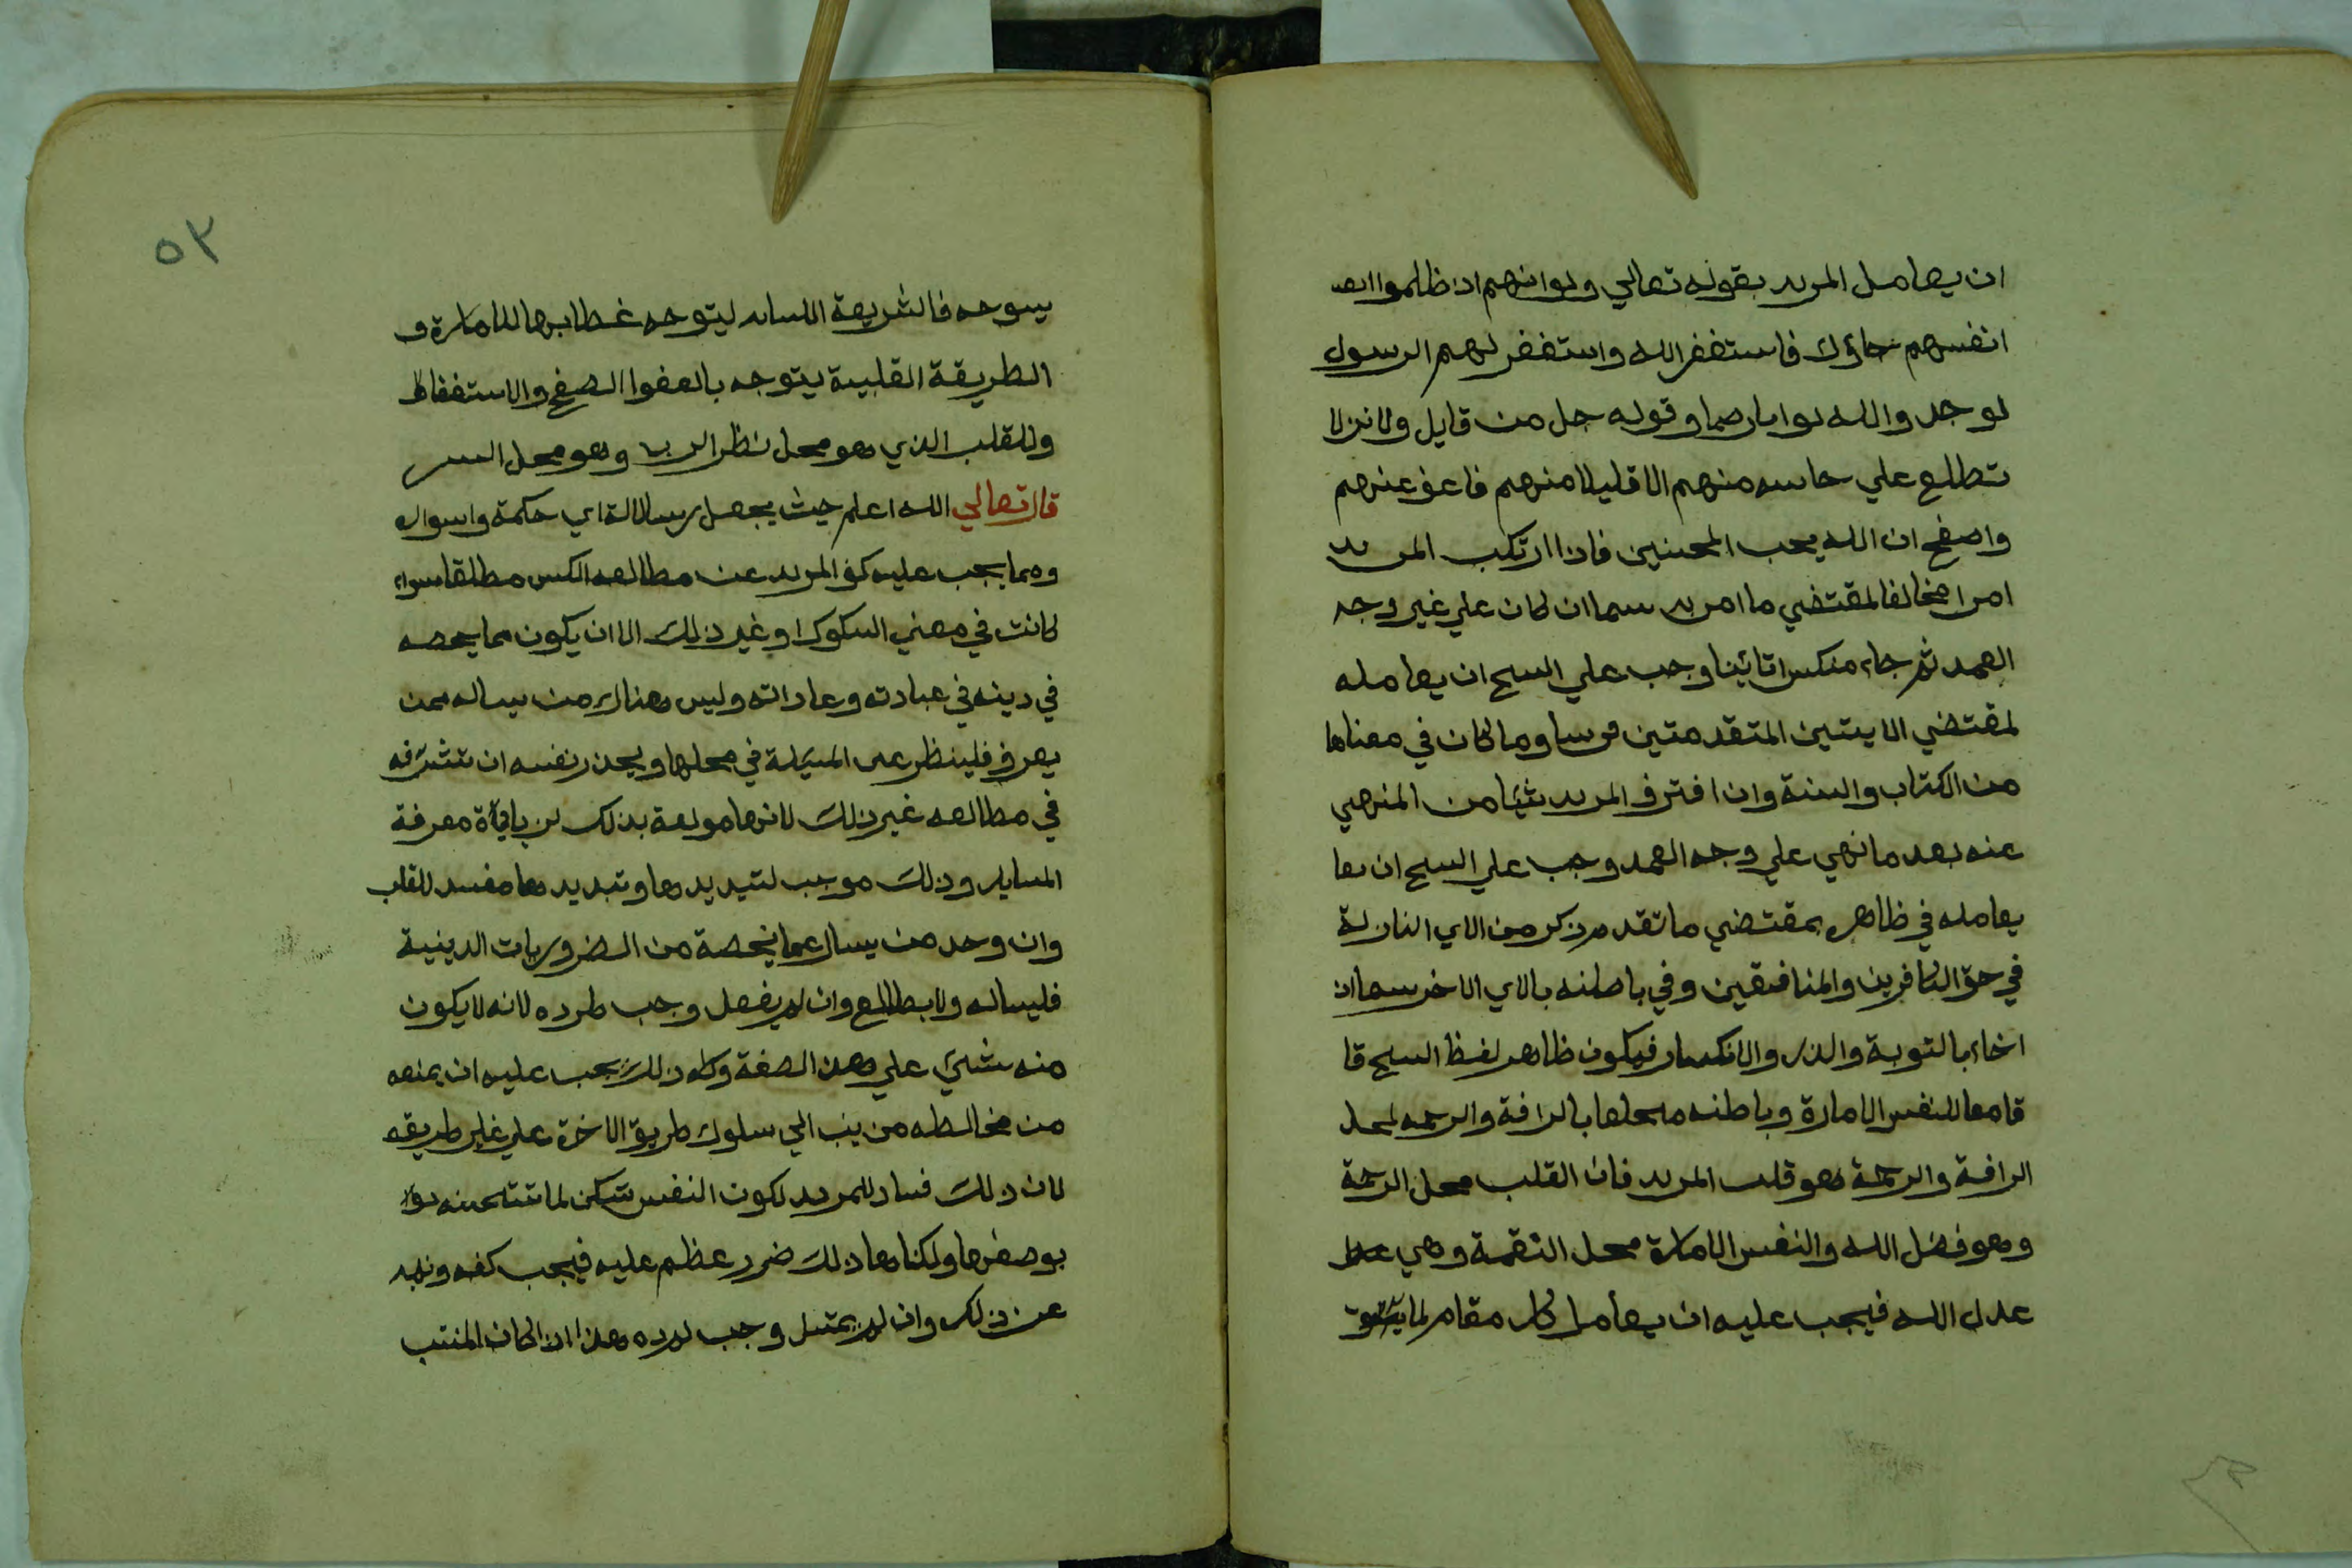 ان يعامل المريد بقوله تعالي ولو انهم اذ ظلموا انف
انفسهم جاؤك فاستغفر الله واستغفر لهم الرسول
لوجدوا الله توابا رحيما وقوله جل من قايل ولا تزال
تطلع علي خاينه منهم الا قليلا منهم فاعف عنهم
واصفح ان الله يحب المحسنين فاذا ارتكب المريد
امرا مخالفا لمقتضي ما امر به سيما ان كان علي غير وجه
العمد ثم جاء منكسرا تائبا وجب علي الشيخ ان يعامله
لمقتضي الايتين المتقدمتين قريبا وما كان في معناها
من الكتاب والسنة وان اقترف المريد شيئا من المنهي
عنه بعد ما نهي علي وجه العمد وجب علي الشيخ ان يعا
يعامله في ظاهره بمقتضي ما تقدم ذكر من الاي النازلة
في حق الكافرين والمنافقين وفي باطنه بالاي الاخر سيما ان
اخاء بالتوبة والذل والانكسار فيكون ظاهر لفظ الشيخ قا
قامعا للنفس الامارة وباطنه بالرافة والرحمه لمحل
الرافة والرحمة وهو قلب المريد فان القلب محل الرحمة
وهو فضل الله والنفس الامارة محل النقمة وهي
عدل الله فيجب عليه ان يعامل كل مقام لما
٥٣
فالشريعة اللسانيه ليتوجه خطابها للامارة و
الطريقة القلبية يتوجه بالعفوا الصفح والاستغفار
وللقلب الذي هو محل نظر الرب وهو محل السر
قال تعالي الله اعلم حيث يجعل رسالالة اي حكمة واسراره
ومما يجب عليه كف المريد عن مطالعه الكتب مطلقا سواء
كانت في معني السكوك او غير ذلك الا ان يكون مما يخصه
في دينه في عبادته وعاداته وليس هناك من يساله ممن
يعرف فلينظر عن المسئلة في محلها ويحذر نفسه ان تتشرفه
في مطالعه غير ذلك لانها مولعة بذلك معرفة
المسايل وذلك موجب لتبديدها وتبديدها مفسد للقلب
وان وجد من يسال عما يخصة من الضروريات الدينية
فليساله ولا يطالع وان لم يفعل وجب طرده لانه لا يكون
منه شيئ علي هذه الصفة وكذلك يجب عليه ان يمنعه
من مخالطه من ينسب الي سلوك طريق الاخرة علي غير طريقه
لان ذلك فساد للمريد لكون النفس تسكن لما
بوصفها ولكنا هاذلك ضرر عظم عليه فيجب كفه ونهيه
عن ذلك وان لم يمتثل وجب طرده هذا اذا كان المنتسب